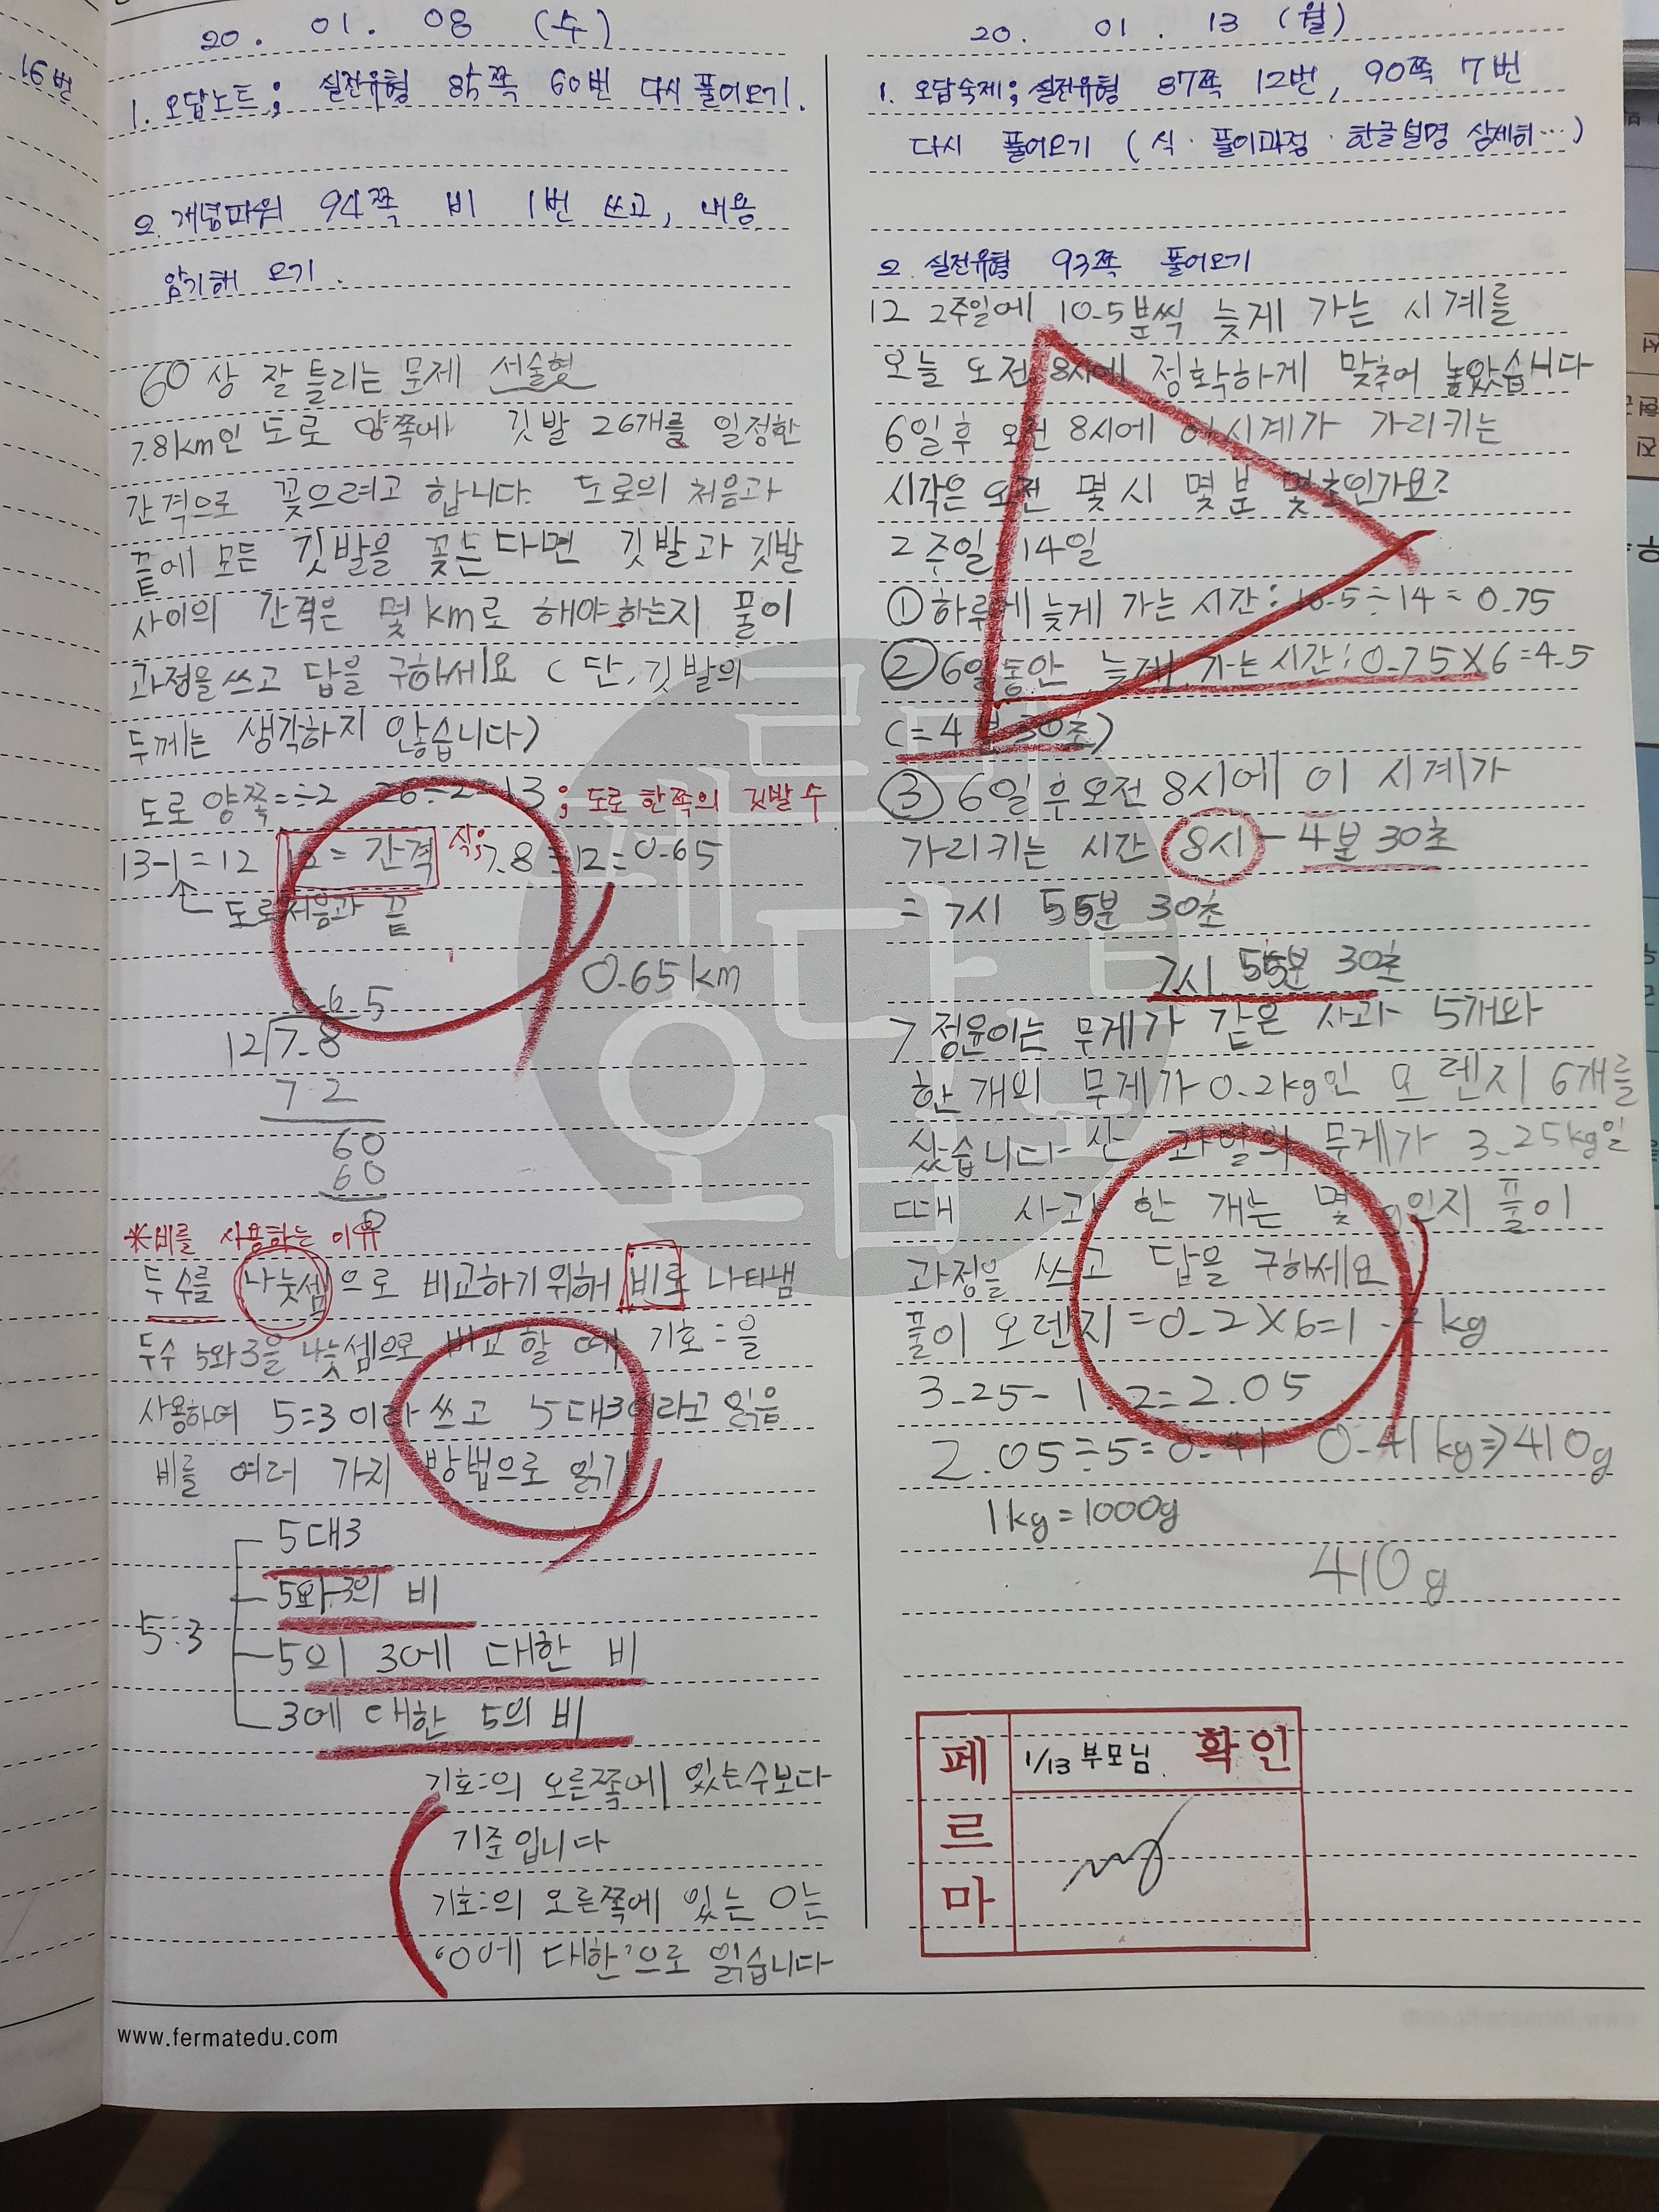 16번
20. 01. 08 (수)
1. 오답노트; 실전유형 85쪽 60번 다시 풀어오기.
2. 개념파워 94쪽 비 1번 쓰고, 내용
암기해 오기.
60 상 잘 틀리는 문제 서술형
7.8km인 도로 양쪽에 깃발 26개를 일정한
간격으로 꽂으려고 합니다. 도로의 처음과
끝에 모든 깃발을 꽂는다면 깃발과 깃발
사이의 간격은 몇 km로 해야 하는지 풀이
과정을 쓰고 답을 구하세요 (단, 깃발의
두께는 생각하지 않습니다)
도로 양쪽=÷2 26÷2=13 ; 도로 한쪽의 깃발 수
13-1=12 12=간격 식; 7.8÷12=0.65
도로처음과 끝
0.65km
0.65
12)7.8
72
60
60
0
*비를 사용하는 이유
두 수를 나눗셈으로 비교하기 위해 비로 나타냄
두수 5와 3을 나눗셈으로 비교할 때 기호 :을
사용하여 5:3이라 쓰고 5대3이라고 읽음
비를 여러 가지 방법으로 읽기
5대3
5와 3의 비
5:3
5의 3에 대한 비
3에 대한 5의 비
기호:의 오른쪽에 있는수보다
기준입니다
기호:의 오른쪽에 있는 0는
'0에 대한'으로 읽습니다
www.fermatedu.com
20. 01. 13 (월)
1. 오답숙제; 실전유형 87쪽 12번, 90쪽 7번
다시 풀어오기 (식·풀이과정·한글설명 상세히…)
2. 실전유형 93쪽 풀어오기
12 2주일에 10.5분씩 늦게 가는 시계를
오늘 오전 8시에 정확하게 맞추어 놓았습니다
6일후 오전 8시에 이 시계가 가리키는
시각은 오전 몇 시 몇 분 몇 초인가요?
2주일=14일
① 하루에 늦게 가는 시간: 10.5÷14=0.75
② 6일동안 늦게 가는 시간: 0.75×6=4.5
(=4분 30초)
③ 6일 후 오전 8시에 이 시계가
가리키는 시간 8시-4분 30초
=7시 55분 30초
7시 55분 30초
7 정윤이는 무게가 같은 사과 5개와
한 개의 무게가 0.2kg인 오렌지 6개를
샀습니다. 산 과일의 무게가 3.25kg일
때 사과 한 개는 몇 g인지 풀이
과정을 쓰고 답을 구하세요
풀이 오렌지=0.2×6=1.2kg
3.25-1.2=2.05
2.05÷5=0.41 0.41kg⇒410g
1kg=1000g
410g
페르마
1/13 부모님. 확인